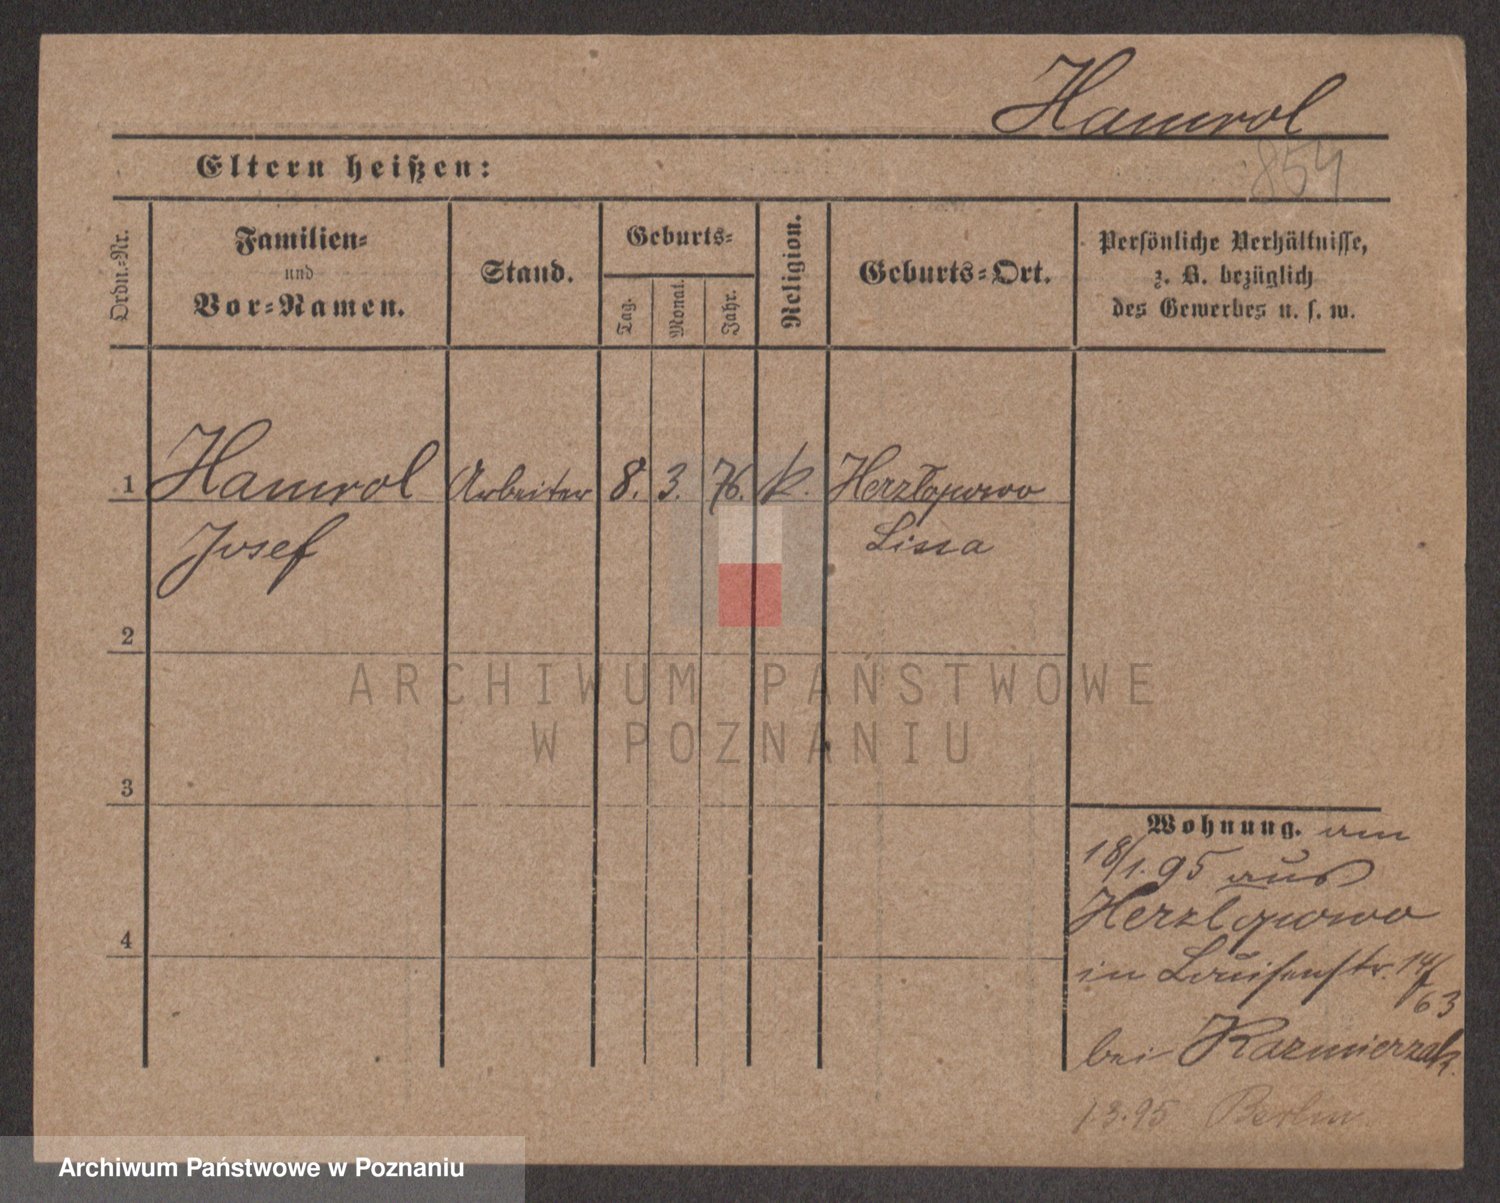 Hamrol
854
Eltern heißen:
Ordn.-Nr.
Familien-
und
Vor-Namen.
Stand.
Geburts-
Tag.
Monat.
Jahr.
Religion.
Geburts-Ort.
Persönliche Verhältnisse,
z. B. bezüglich
des Gewerbes u. s. w.
1 Hamrol Arbeiter 8. 3. 76. k. Herzlopowo
Josef Lissa
2
3
4
Wohnung. am
18/1.95 aus
Herzlopowo
in Louisenstr. 14/
63
bei Kazmierzak.
1.3.95 Berlin
ARCHIWUM PAŃSTWOWE
W POZNANIU
Archiwum Państwowe w Poznaniu